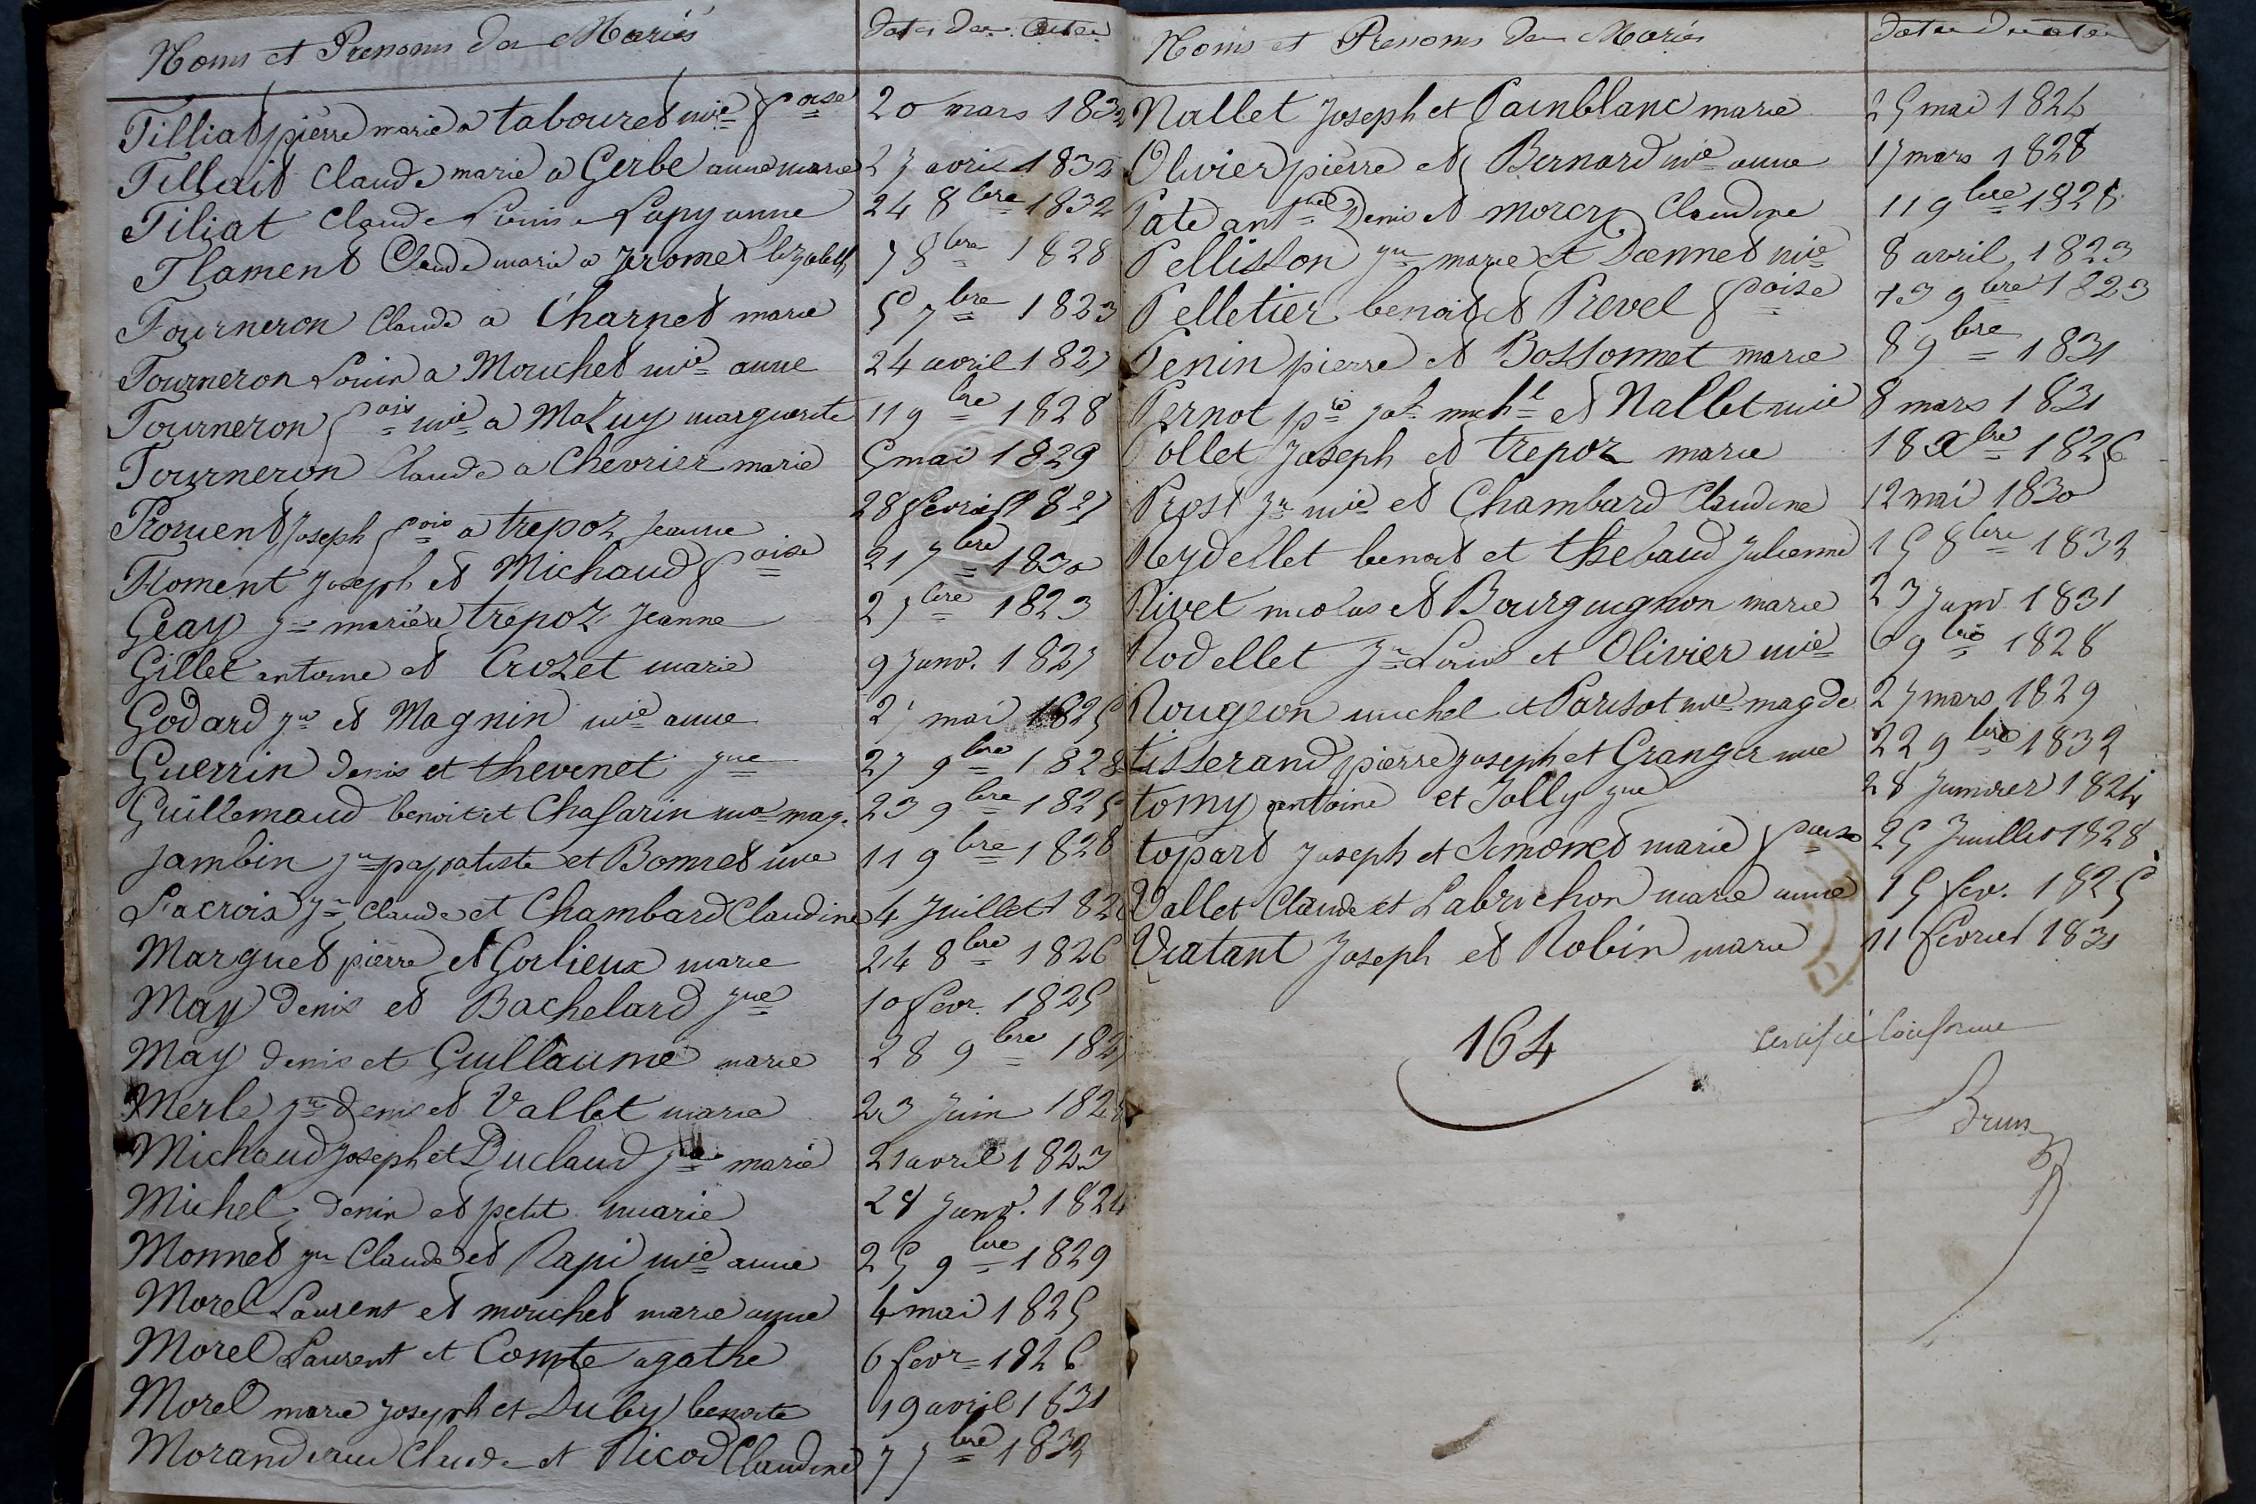 Noms et Prenoms des Mariés
dates des actes
Filliat pierre marie a tabouret mie fcoise
20 mars 1832
Filliait Claude marie a Gerbe anne marie
27 avril 1832
Filiat Claude Louis a Lapy anne
24 8bre 1832
Flament Claude marie a Jerome Elizabeth
7 8bre 1828
Fourneron Claude a Charnet marie
5 7bre 1823
Fourneron Louis a Mouchet mie anne
24 avril 1827
Fourneron fcois mie a Mazuy marguerite
11 9bre 1828
Fourneron Claude a Chevrier marie
5 mai 1829
Froment Joseph fcois a trepoz Jeanne
28 fevrier 1827
Froment Joseph et Michaud fcoise
21 7bre 1830
Geay Jn marie a trepoz Jeanne
2 7bre 1823
Gillet antoine et Crozet marie
9 Janv. 1827
Godard Jn et Magnin mie anne
2 mai 1825
Guerrin denis et thevenet Jne
27 9bre 1828
Guillemaud benoit et Chafarin mie mag.
23 9bre 1825
Jambin Jn baptiste et Bonnet mie
11 9bre 1828
Lacroix Jn Claude et Chambard Claudine
4 Juillet
Marguet pierre et Gorlieux marie
24 8bre 1826
May denis et Bachelard Jne
10 fevr. 1825
May denis et Guillaume marie
28 9bre
Merle Jn denis et Vallet marie
23 Juin
Michaud Joseph et Duclaud Jne marie
21 avril 1823
Michel denis et petit marie
28 Janv. 1824
Monnet Jn Claude et Rapi mie anne
25 9bre 1829
Morel Laurent et mouchet marie anne
4 mai 1825
Morel Laurent et Comte agathe
6 fevr 1826
Morel marie Joseph et Duby benoite
19 avril 1831
Morand Claude et Nicod Claudine
7 7bre 1832
Noms et Prenoms des Mariés
dates des actes
Nallet Joseph et Painblanc marie
25 mai 1824
Olivier pierre et Bernard mie anne
17 mars 1828
Pate anthel Denis et morey Claudine
11 9bre 1828
Pellisson Jn marie et Donnet mie
8 avril 1823
Pelletier benoit et Prevel fcoise
13 9bre 1823
Penin pierre et Bossonnet marie
8 9bre 1831
Pernot pre jh michl et Nallet mie
8 mars 1831
Pollet Joseph et trepoz marie
18 Xbre 1826
Prost Jn mie et Chambard Claudine
12 mai 1830
Reydellet benoit et thebaud Julienne
15 8bre 1832
Rivet nicolas et Bourguignon marie
27 Janv 1831
Rodellet Jn Louis et Olivier mie
6 9bre 1828
Rougeon michel et Parisot mie magde
27 mars 1829
tisserand pierre Joseph et Granger mie
22 9bre 1832
tomy antoine et Jolly Jne
28 Janvier 1824
topart Joseph et Simonet marie fcoise
25 Juillet 1828
Vallet Claude et Labrichon marie anne
15 fev. 1825
Vratant Joseph et Robin marie
11 fevrier 1831
164
Certifié Conforme
Brun